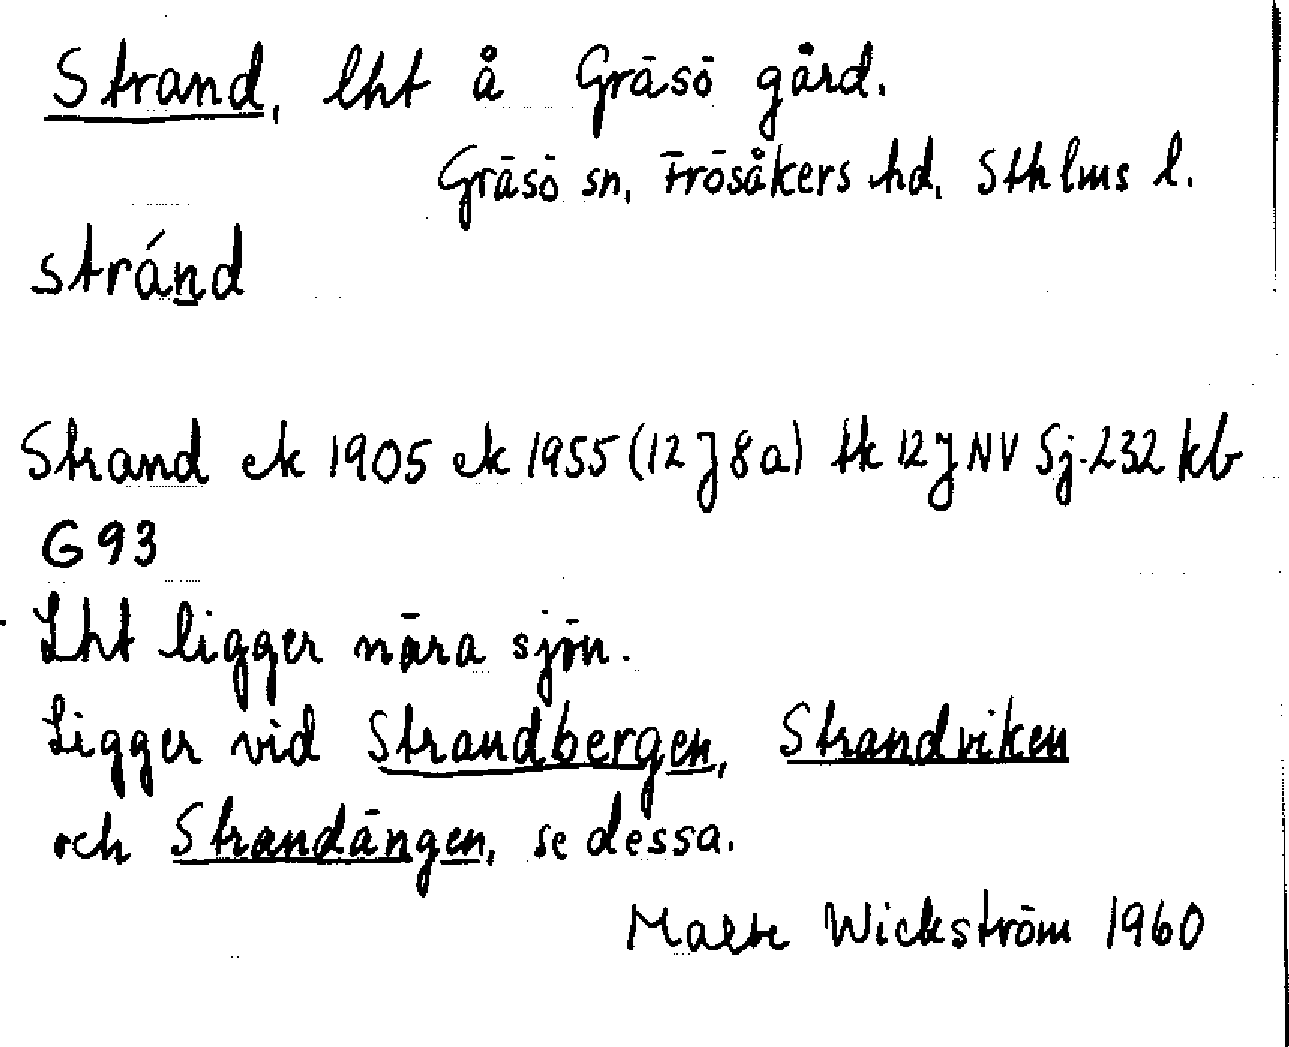 Strand, lht å Gräsö gård.
Gräsö sn, Frösåkers hd, Sthlms l.
stránd
Strand ek 1905 ek 1955 (12 J 8a) tk 12 J NV Sj. 232 kb
G 93
Lht ligger nära sjön.
Ligger vid Strandbergen, Strandviken
och Strandängen, se dessa.
Malte Wickström 1960